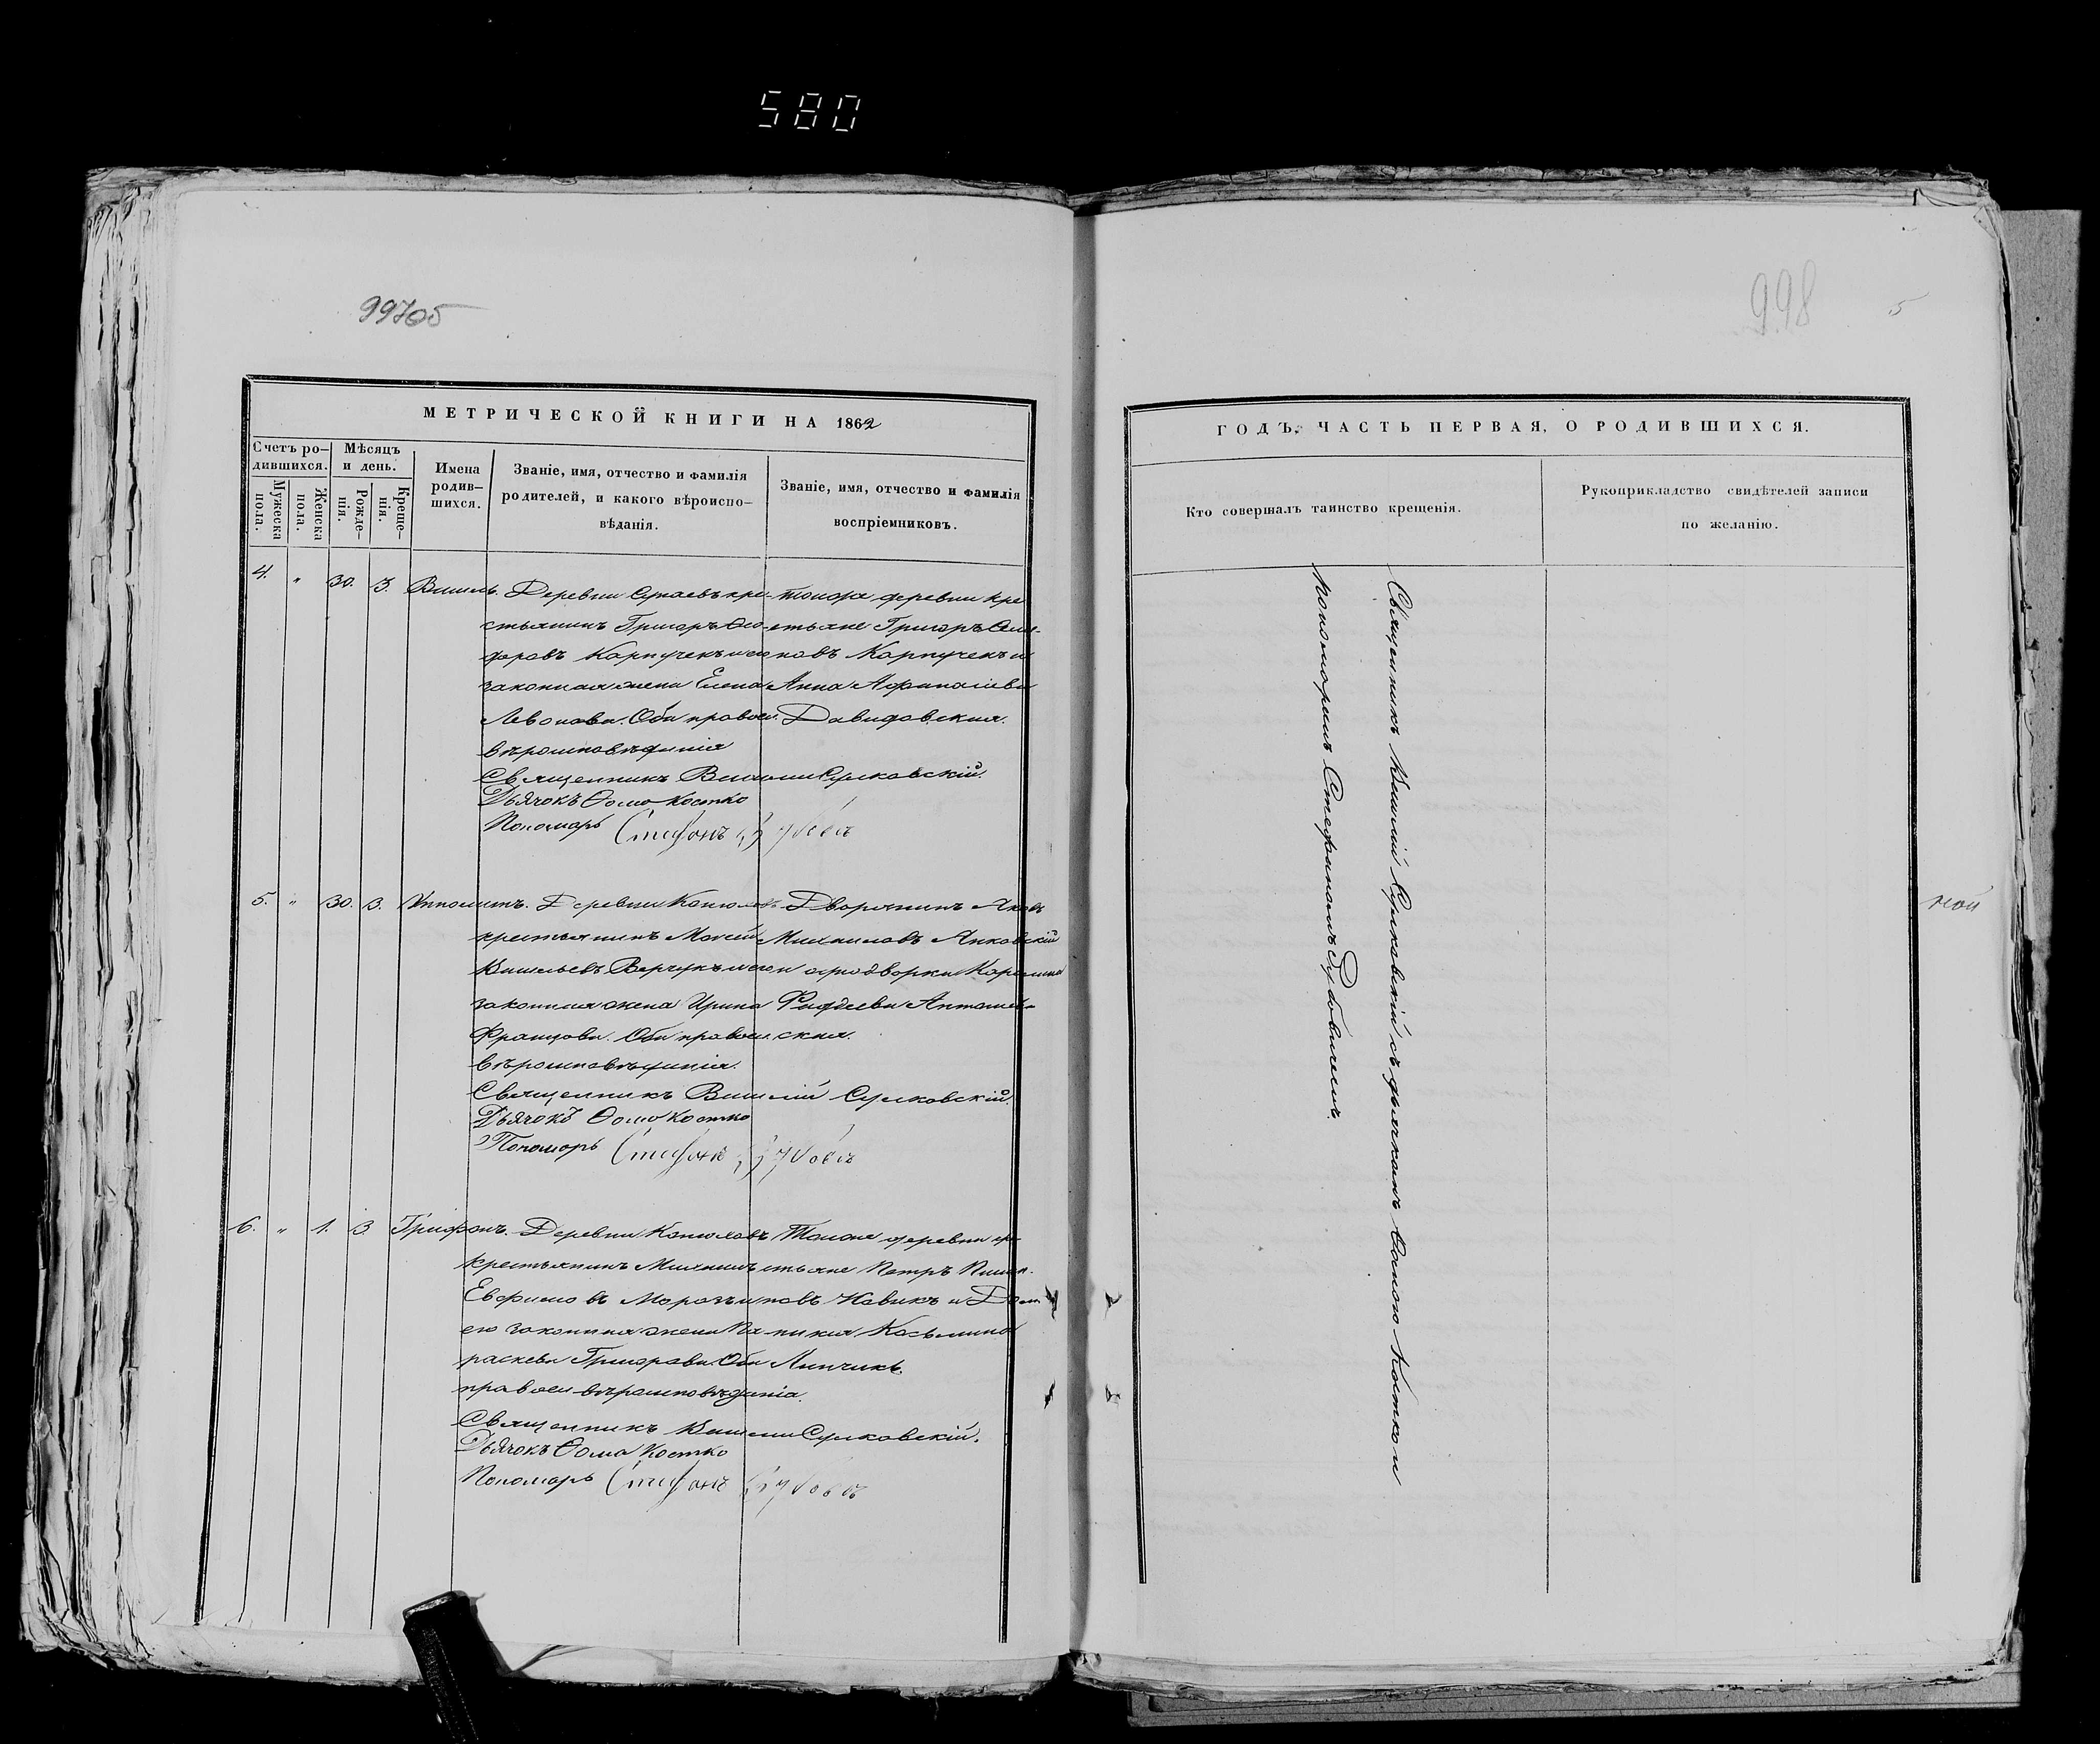 580
99705
МЕТРИЧЕСКОЙ КНИГИ НА 1862
Счетъ родившихся.
Мѣсяцъ и день.
Мужеска пола.
Женска пола.
Рожденія.
Крещенія.
Имена родившихся.
Званіе, имя, отчество и фамилія
родителей, и какого вѣроиспо-
вѣданія.
Званіе, имя, отчество и фамилія
воспріемниковъ.
4. " 30. 3.
Деревни
стьянинъ Григоръ Ѳео-
доровъ Карпучекъ и его
законная жена Елена
Левонова. Оба правосл.
вѣроисповѣданія
тойже деревни кре
стьяне Григоръ
новъ Карпучекъ и
Анна Афанасіева
Давидовская.
Священникъ Василій Сулковскій.
Дьячокъ Ѳома Костко
Пономарь Стефанъ
5. " 30. 3. Ипполитъ.
Деревни
крестьянинъ Моисей
Васильевъ
законная жена Ирина
Францова. Оба правосл.
вѣроисповѣданія.
Дворянинъ Яковъ
Михаиловъ Янковскій
и однодворка Каролина
Фадеева
ская.
Священникъ Василій Сулковскій.
Дьячокъ Ѳома Костко
Пономарь Стефанъ
6. " 1. 3 Трифонъ.
Деревни
крестьянинъ Михаилъ
Евфимовъ
его законная жена Па
раскева Григорова. Оба
правосл. вѣроисповѣданія.
Тойже деревни кре
стьяне Петръ
новъ Новикъ и
Косьмина
Священникъ Василій Сулковскій.
Дьячокъ Ѳома Костко
Пономарь Стефанъ
998
5
ГОДЪ. ЧАСТЬ ПЕРВАЯ, О РОДИВШИХСЯ.
Кто совершалъ таинство крещенія.
Рукоприкладство свидѣтелей записи
по желанію.
Священникъ Василій Сулковскій съ дьячкомъ Ѳомою Костко и
пономаремъ Стефаномъ
ной